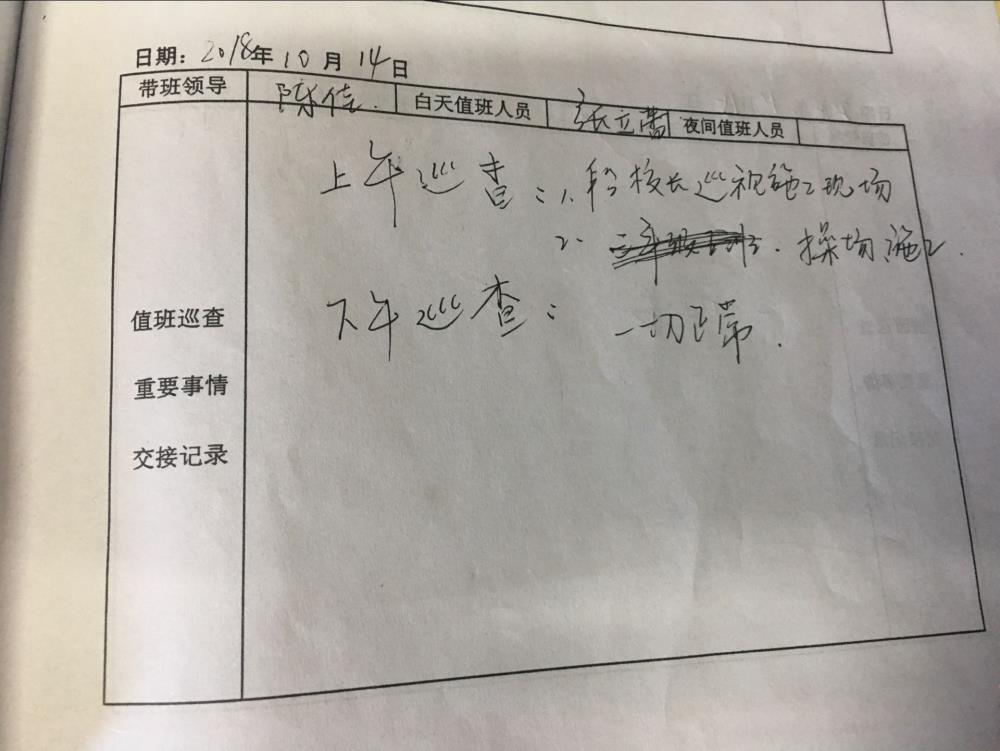 日期：2018年10月14日
带班领导 陈佳. 白天值班人员 张立 夜间值班人员
上午巡查：1、 校长巡视施工现场
2、 操场施工.
值班巡查 下午巡查： 一切正常.
重要事情
交接记录